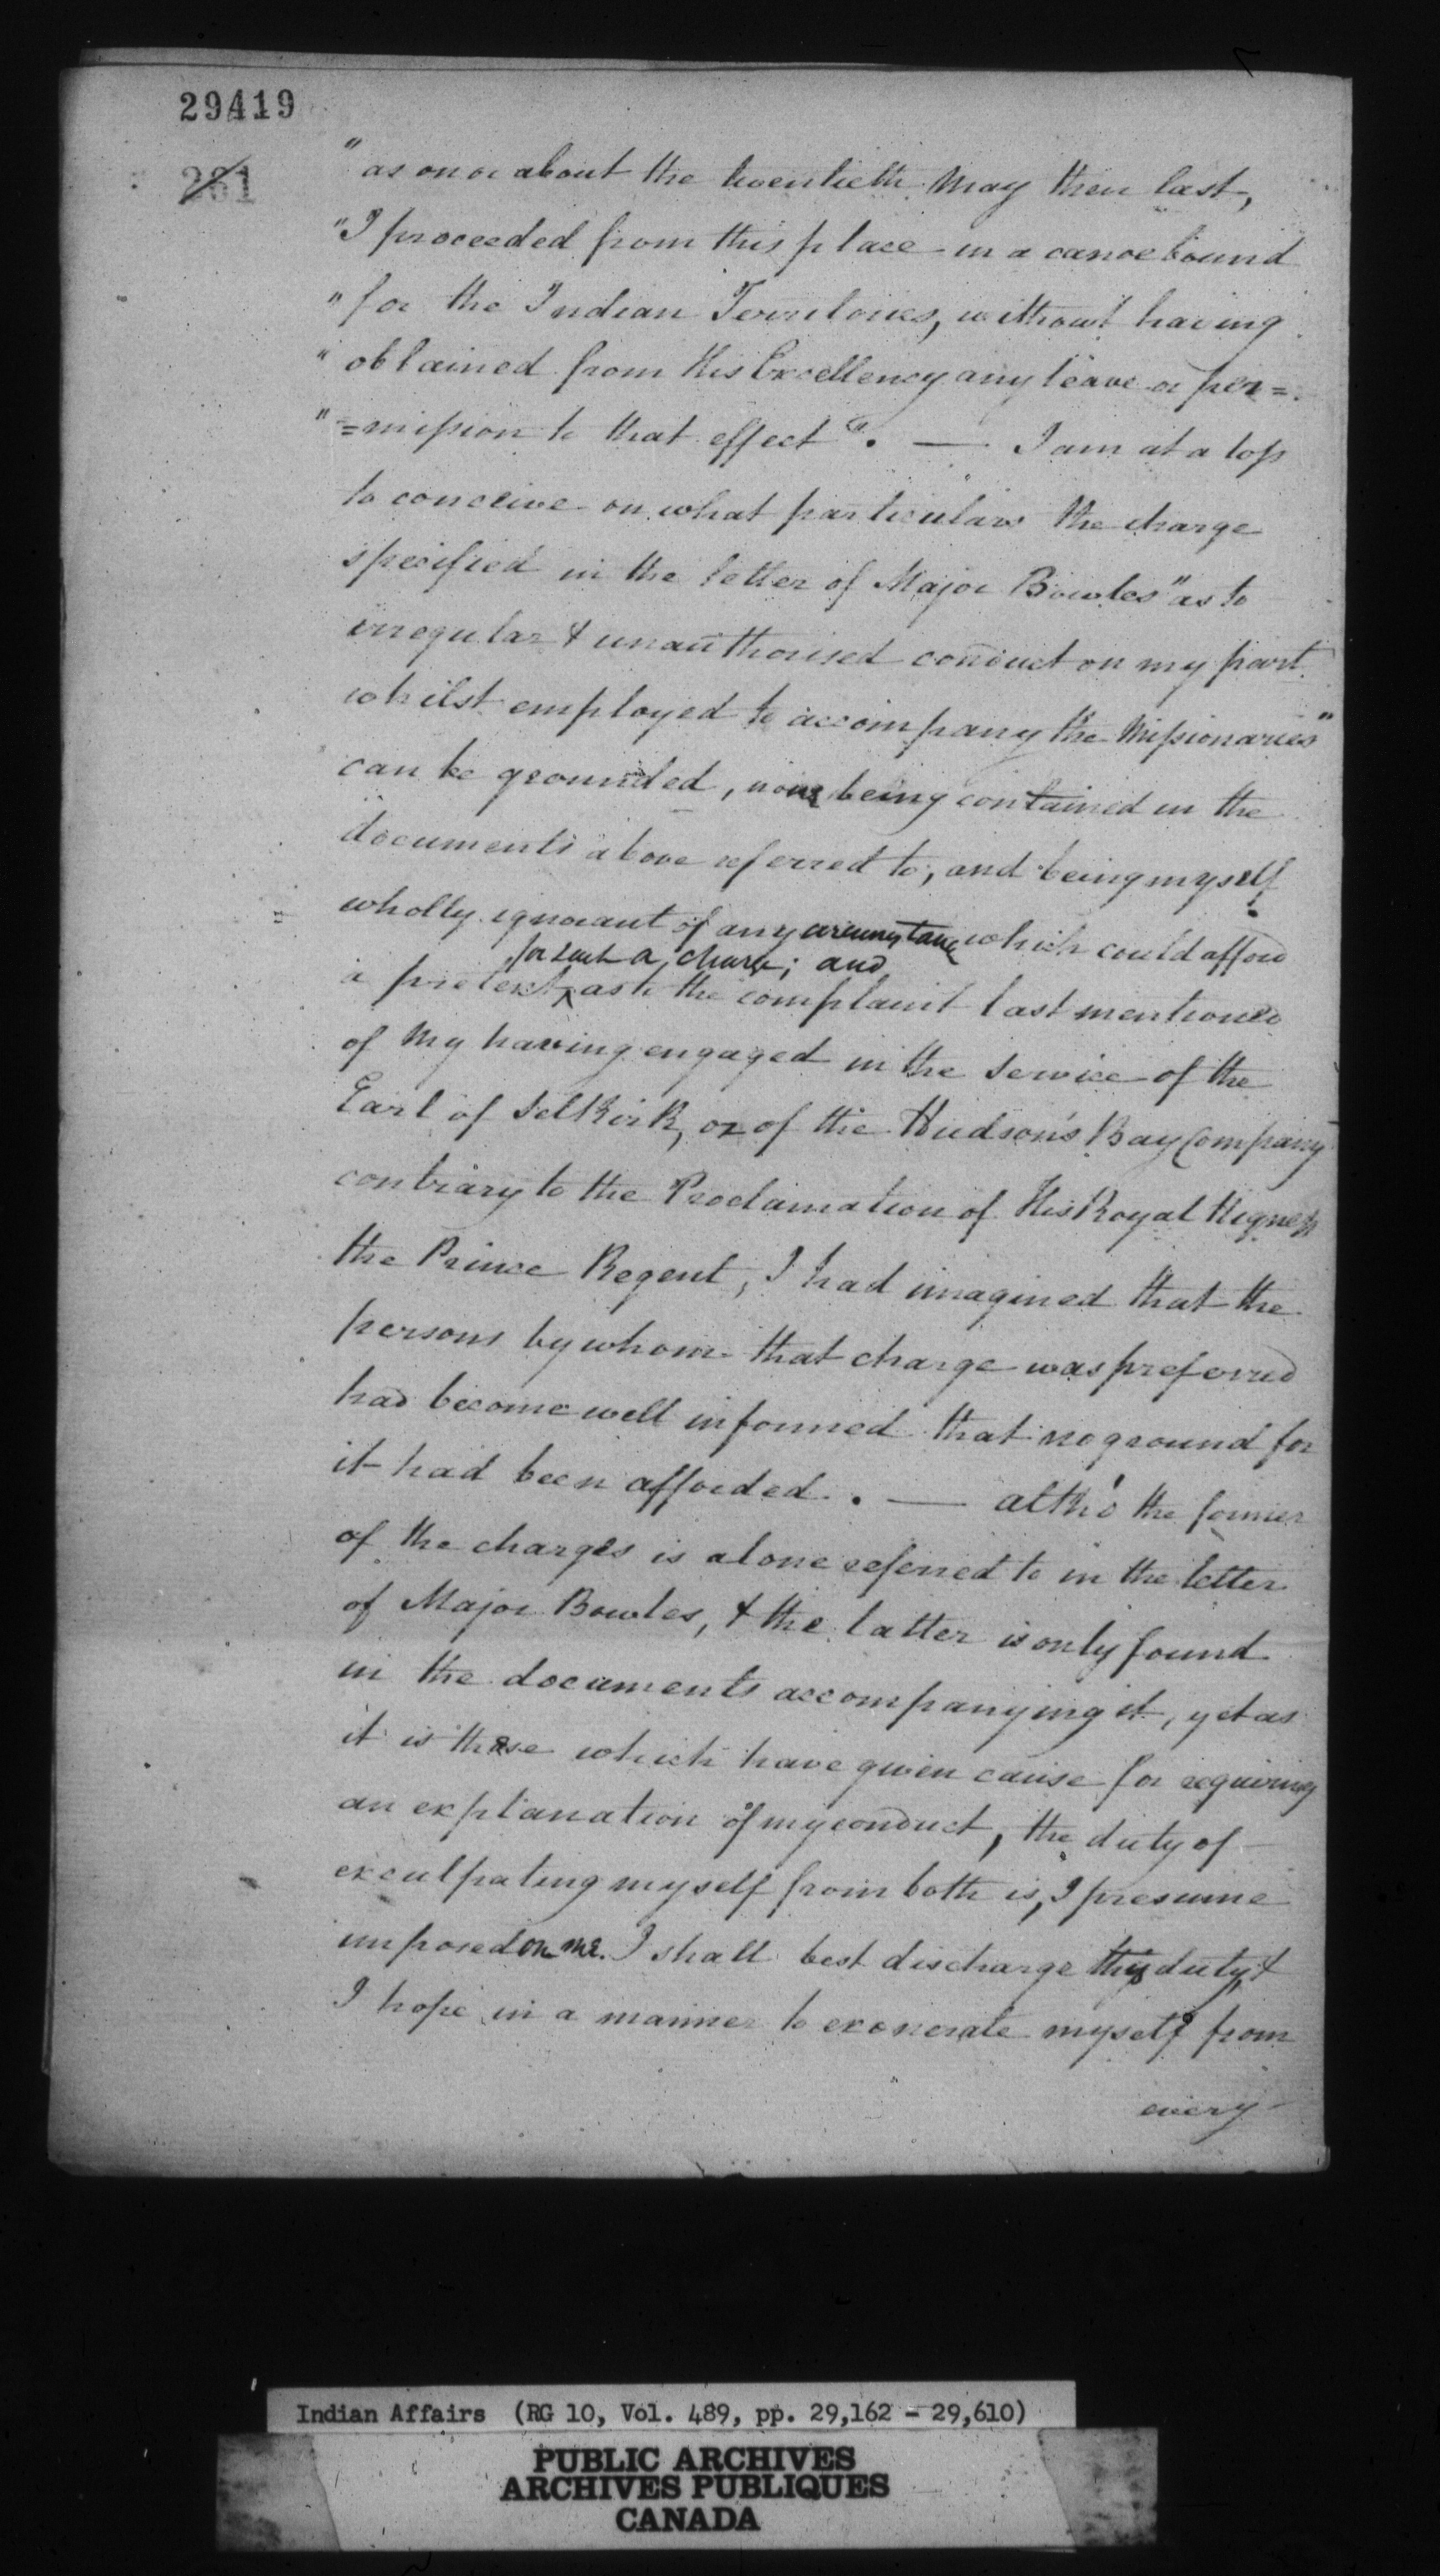 29419
261
"as on or about the twentieth May then last,
"I proceeded from this place in a canoe bound
"for the Indian Territories, without having
"obtained from His Excellency any leave or per=
"=mission to that effect". — I am at a loss
to conceive on what particulars the charge
specified in the letter of Major Bowles "as to
irregular & unauthorised conduct on my part
whilst employed to accompany the Missionaries"
can be grounded, none being contained in the
documents above referred to, and being myself
wholly ignorant of any circumstance which could afford
for such a charge; and
a pretext as to the complaint last mentioned
of my having engaged in the service of the
Earl of Selkirk, or of the Hudson's Bay Company
contrary to the Proclamation of His Royal Higness
the Prince Regent, I had imagined that the
persons by whom that charge was preferred
had become well informed that no ground for
it had been afforded. — altho' the former
of the charges is alone referred to in the letter
of Major Bowles, & the latter is only found
in the documents accompanying it, yet as
it is these which have given cause for requiring
an explanation of my conduct, the duty of
exculpating myself from both is, I presume
imposed on me. I shall best discharge this duty, &
I hope in a manner to exonerate myself from
every
Indian Affairs (RG 10, Vol. 489, pp. 29,162 - 29,610)
PUBLIC ARCHIVES
ARCHIVES PUBLIQUES
CANADA